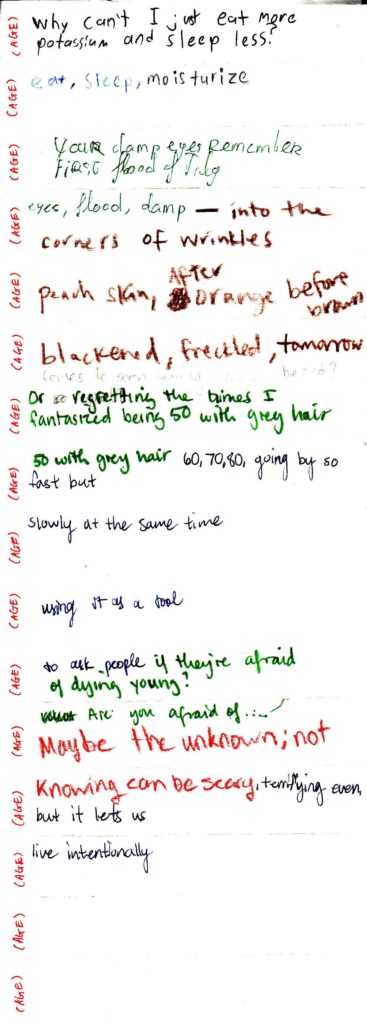 (AGE) Why can't I just eat more
potassium and sleep less?
(AGE) eat, sleep, moisturize
(AGE) Your damp eyes remember
First flood of July
(AGE) eyes, flood, damp — into the
corners of wrinkles
(AGE) peach skin, After orange before
brown
(AGE) blackened, freckled, tomorrow
(AGE) Or so regretting the times I
fantasized being 50 with grey hair
(AGE) 50 with grey hair 60, 70, 80, going by so
fast but
(AGE) slowly at the same time
(AGE) using it as a tool
(AGE) to ask people if they're afraid
of dying young?
Are you afraid of.....
(AGE) Maybe the unknown; not
(AGE) Knowing can be scary, terrifying even,
but it lets us
(AGE) live intentionally
(AGE)
(AGE)